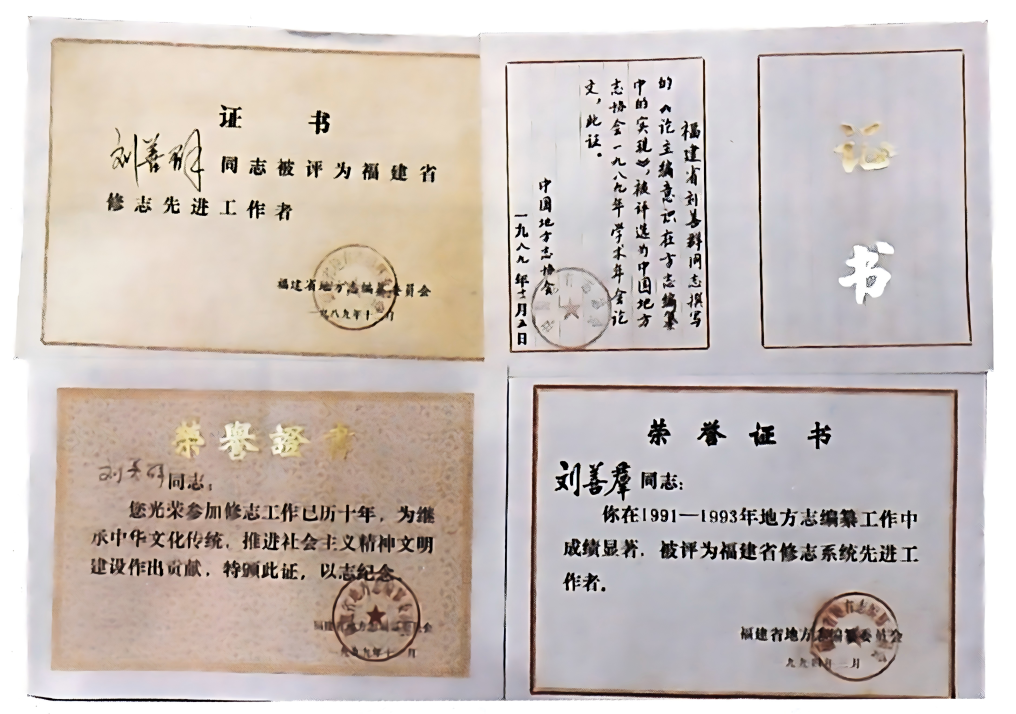 证 书
刘善群 同志被评为福建省
修志先进工作者
福建省地方志编纂委员会
一九八九年十一月
福建省刘善群同志撰写
的《论主编意识在方志编纂
中的实现》，被评选为中国地方
志协会一九八九年学术年会论
文，此证。
中国地方志协会
一九八九年十二月五日
证
书
荣誉證书
刘善群同志：
您光荣参加修志工作已历十年，为继
承中华文化传统，推进社会主义精神文明
建设作出贡献，特颁此证，以志纪念。
福建省地方志编纂委员会
荣誉证书
刘善羣 同志：
你在1991—1993年地方志编纂工作中
成绩显著，被评为福建省修志系统先进工
作者。
福建省地方志编纂委员会